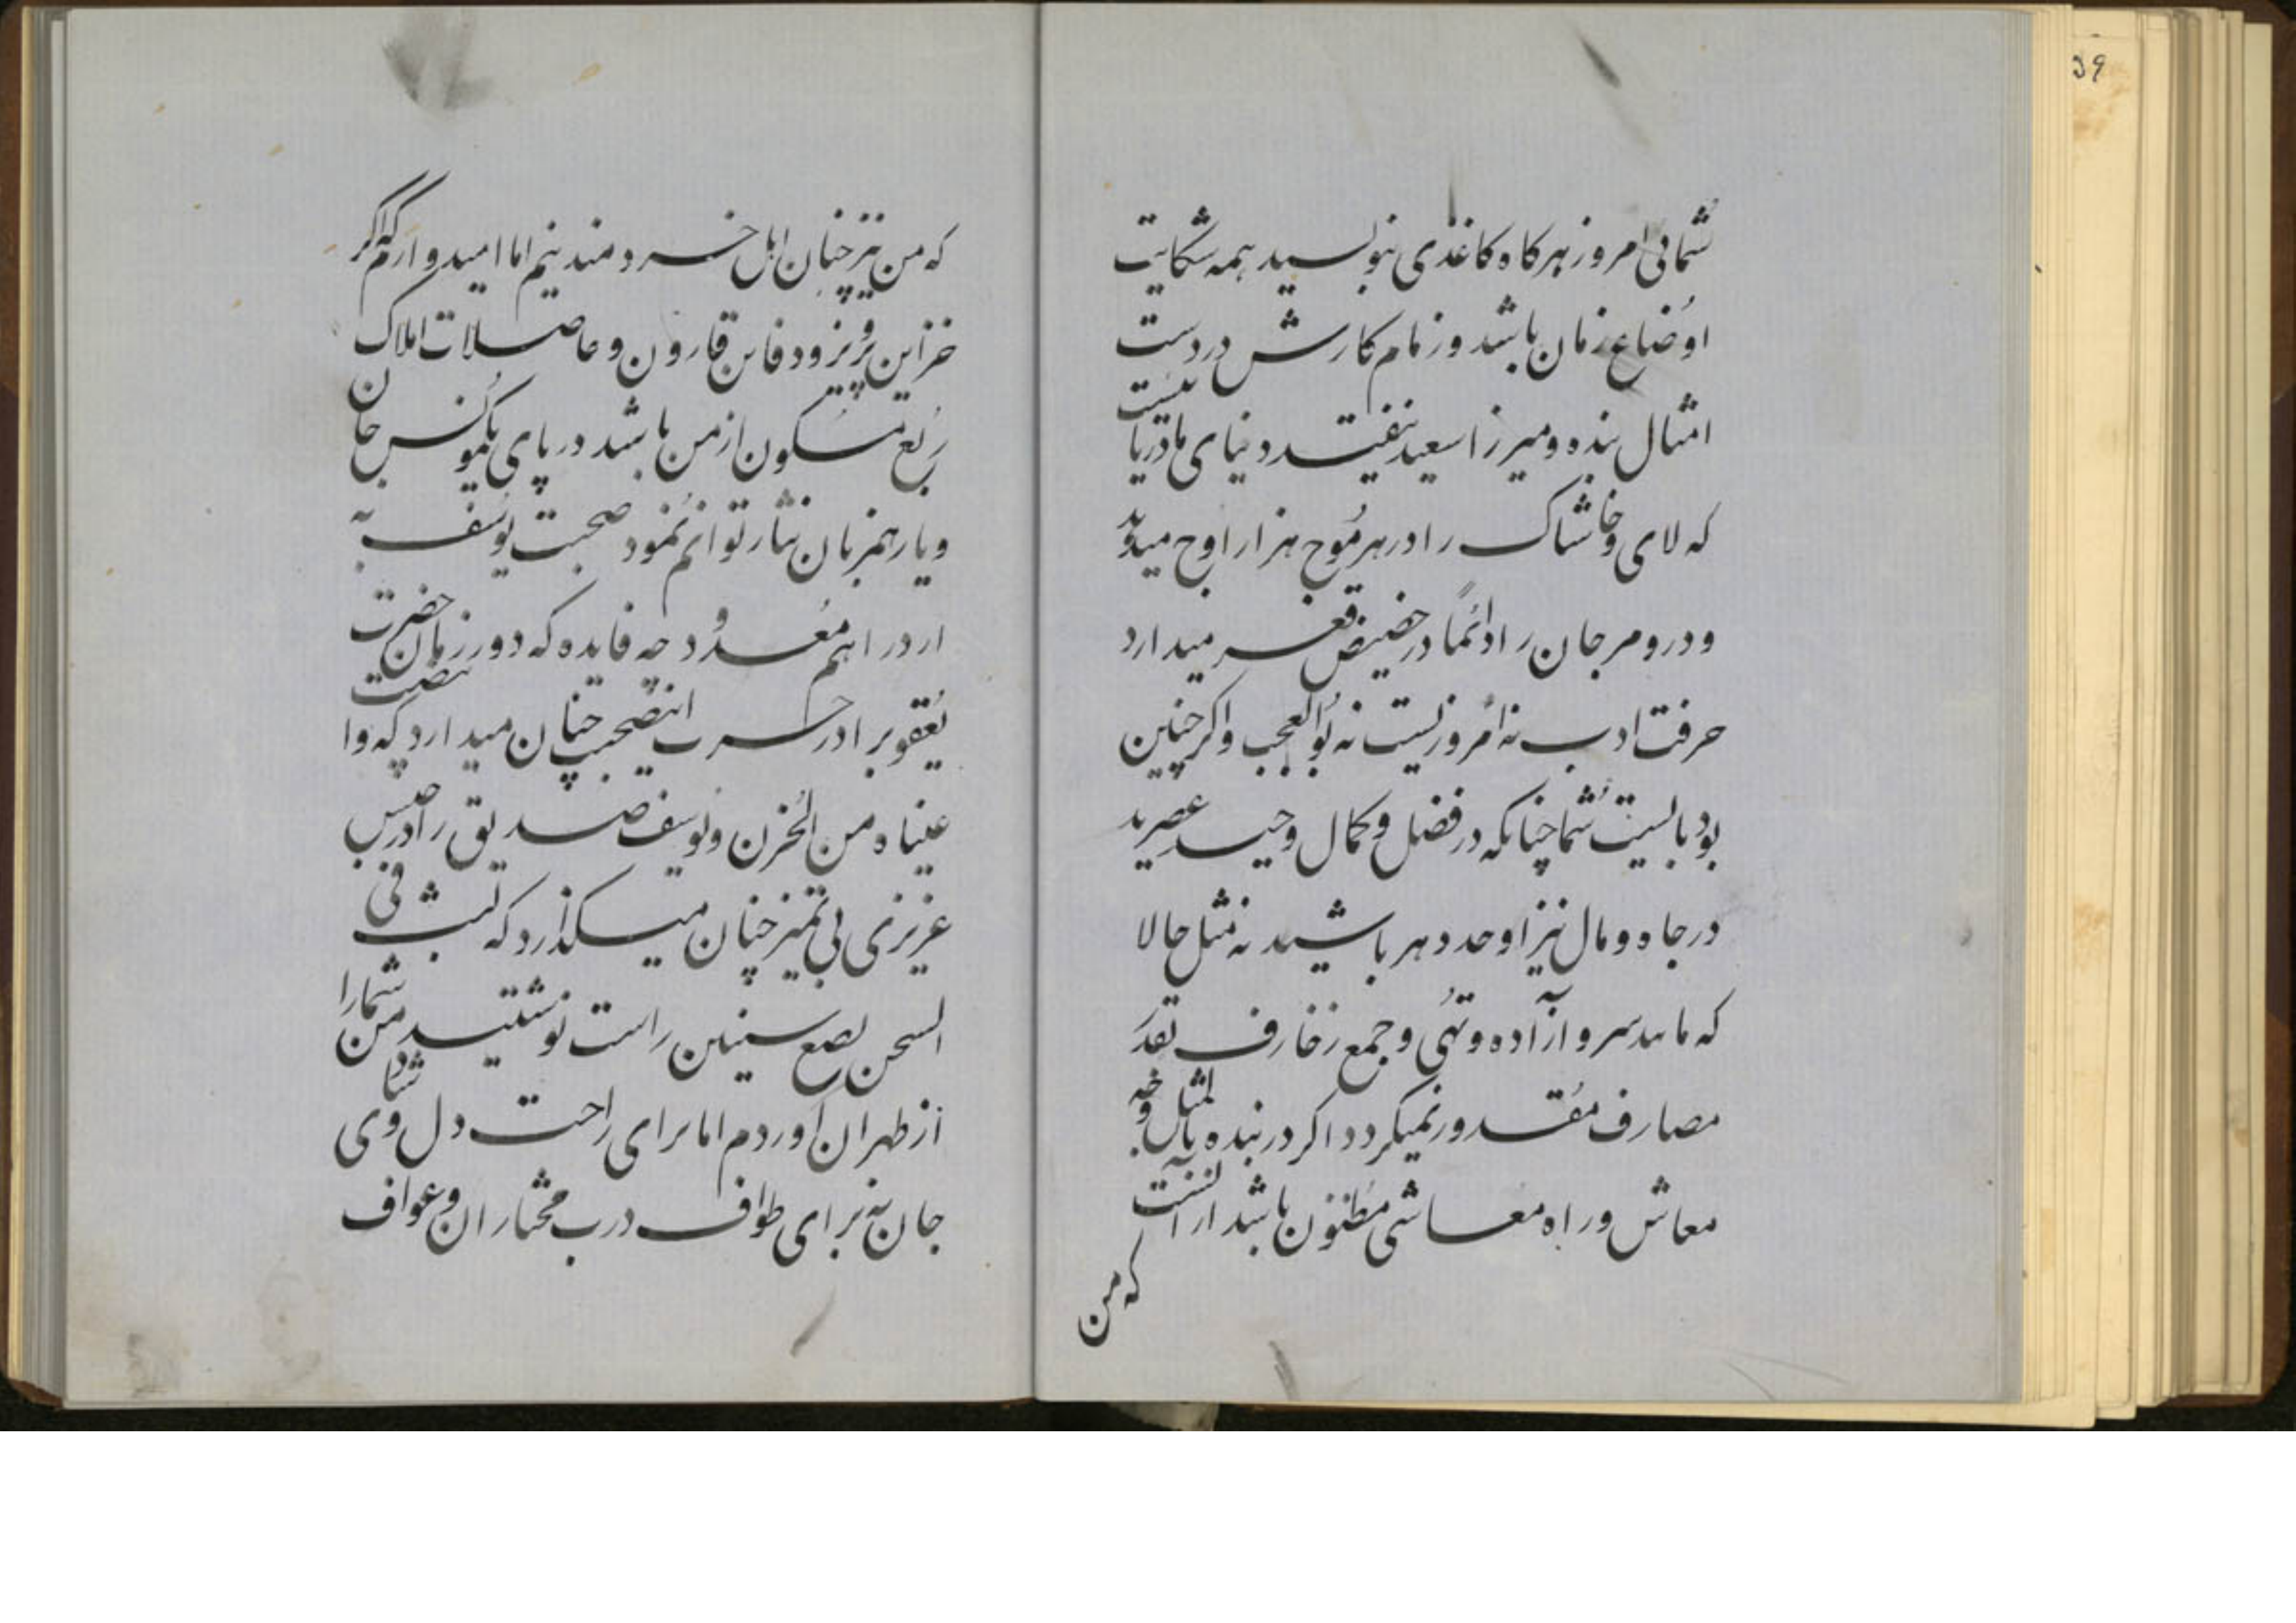 شمائی امروز هر کاه کاغذی بنویسید همه شکایت
اوضاع زمان باشد و زمام کارش در دست
امثال بنده و میرزا سعید نیفتد دنیای ما دریا نیست
که لای و خاشاک را در هر موج هزار اوج میدهد
و در و مرجان را دائماً در حضیض قعر میدارد
حرفت ادب نه امروزیست نه بوالعجب واکر چنین
بود بایست شما چنانکه در فضل و کمال وحید عصرید
در جاه و مال نیز اوحد دهر باشید نه مثل حالا
که مانند سرو آزاده و تهی و جمع زخارف بقدر
مصارف مقدور نمیکردد اکر در بنده بالمثل وجه
معاش و راه معاشی مظنون باشد از آنست
که من
که من نیز چنان اهل خرد مند نیم اما امیدوارم که اکر
خزاین پرویز و دفاین قارون و حاصلات املاک
ربع مسکون از من باشد در پای یکمونس جان
و یار همزبان نثار توانم نمود صحبت یوسف به
از دراهم معدود چه فایده که دور زمان حضرت
یعقوبرا در حسرت اینصحبت چنان میدارد که وا
عیناه من الحزن و یوسف صدیق را در حبس
عزیزی بی تمیز چنان میکذارد که لبث فی
السجن بضع سنین راست نوشتید من شما را
از طهران آوردم اما برای راحت دل و شادی
جان نه برای طواف درب مختاران و عواف
39